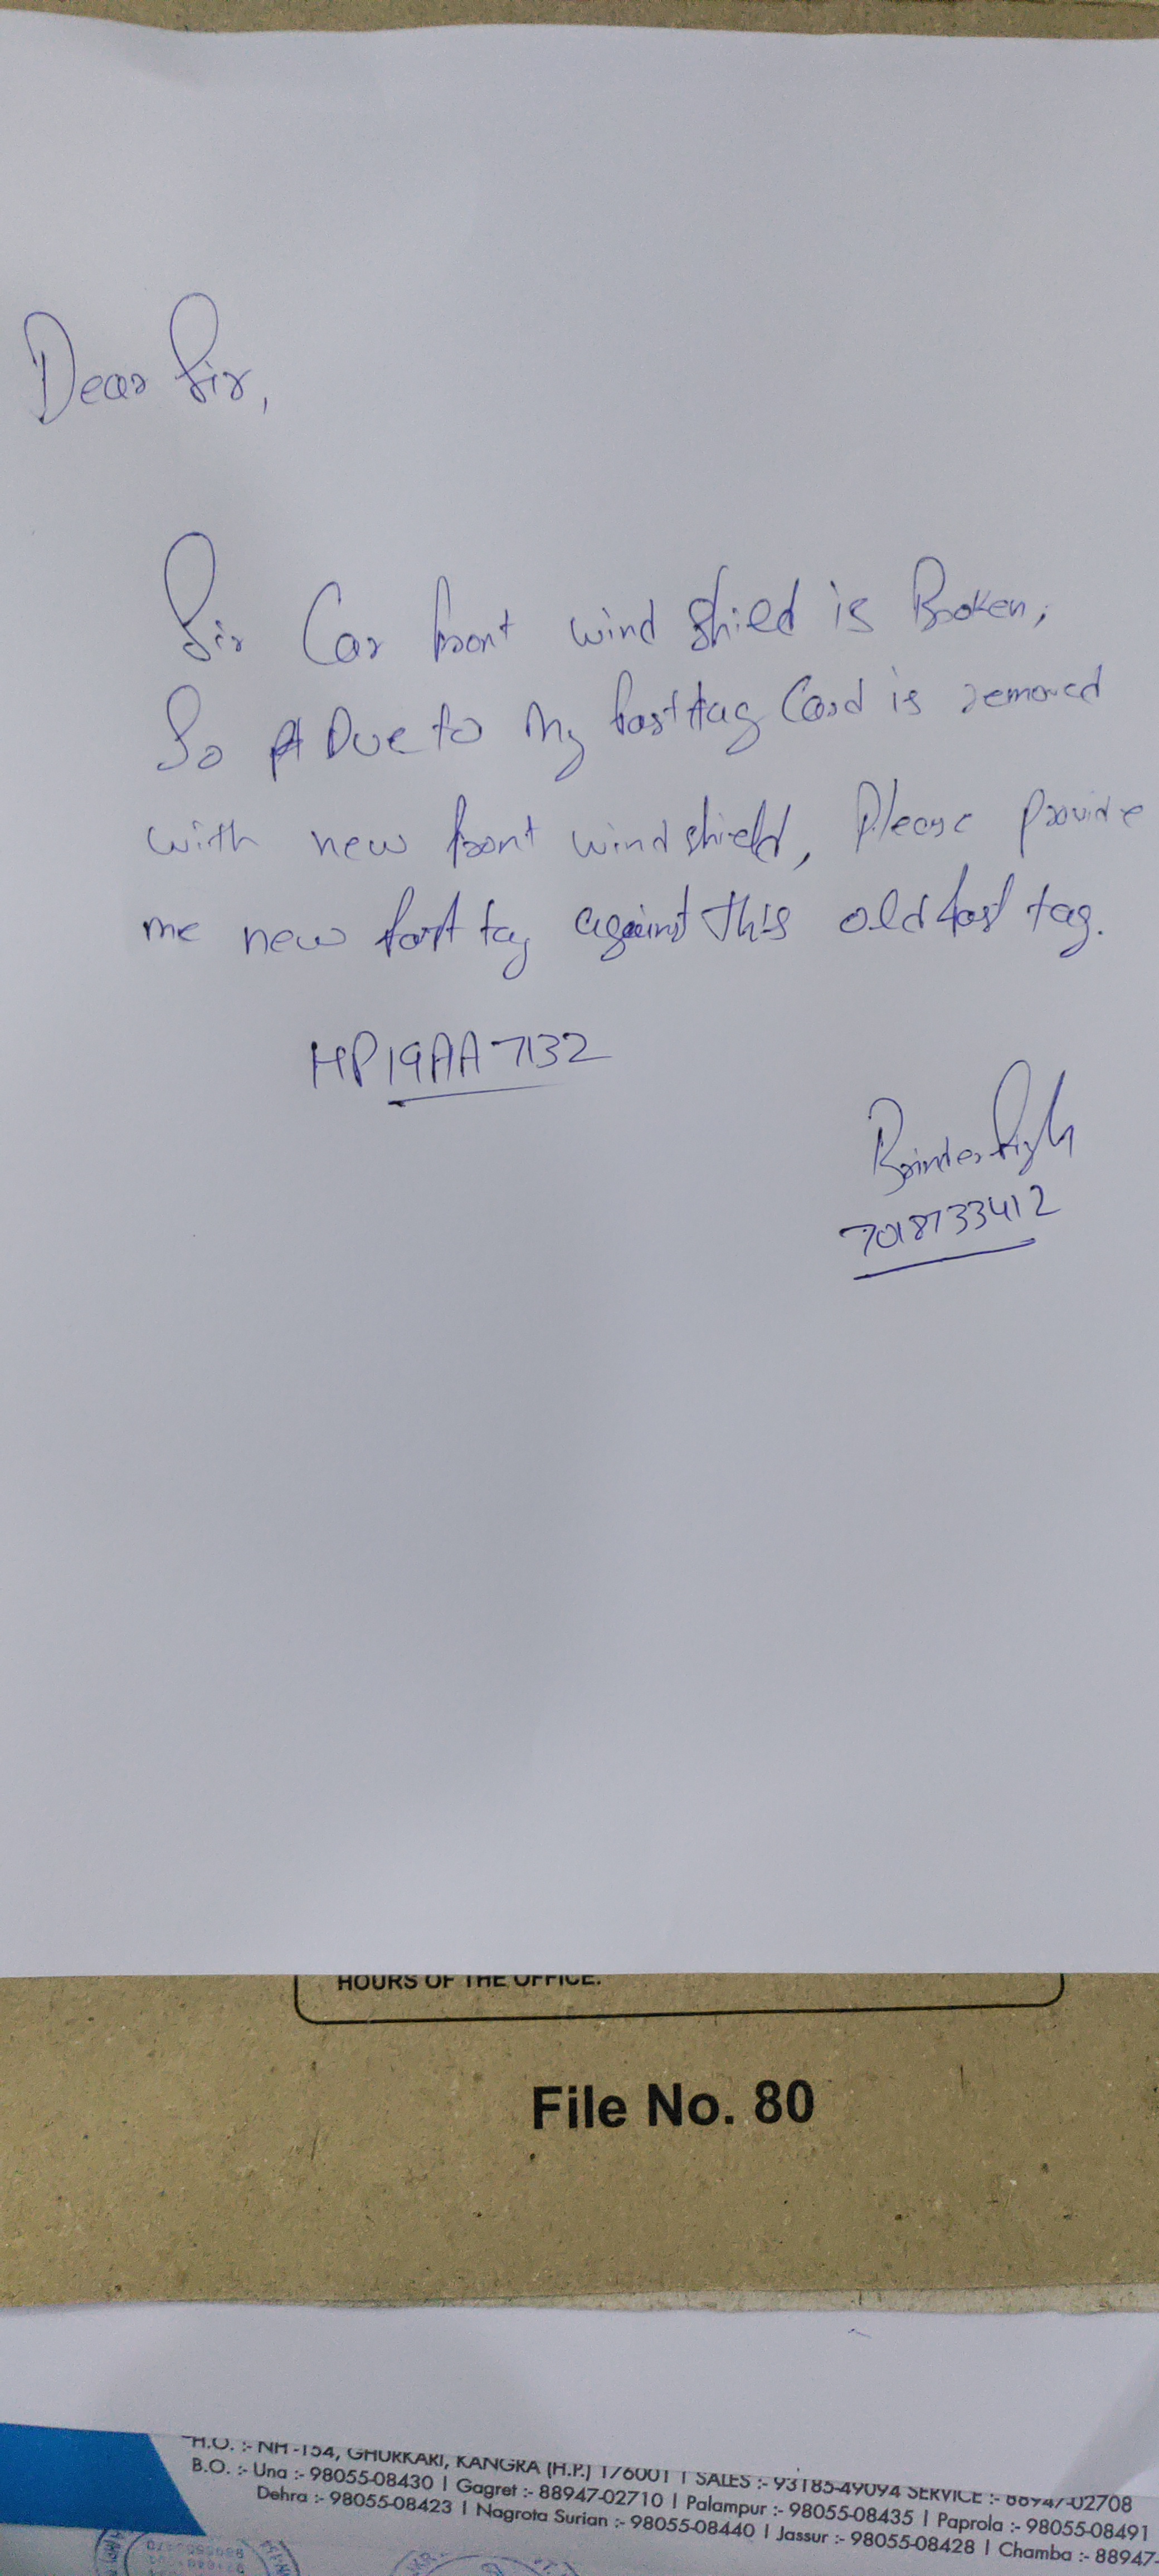 Dear Sir,
Sir Car front wind shield is Broken,
So Due to my fasttag Card is removed
with new front windshield, Please provide
me new fast tag against this old fast tag.
HP19AA7132
Brinder Singh
7018733412
HOURS OF THE OFFICE.
File No. 80
H.O. :- NH -154, GHURKARI, KANGRA (H.P.) 176001 | SALES :- 93185-49094 SERVICE :- 88947-02708
B.O. :- Una :- 98055-08430 | Gagret :- 88947-02710 | Palampur :- 98055-08435 | Paprola :- 98055-08491
Dehra :- 98055-08423 | Nagrota Surian :- 98055-08440 | Jassur :- 98055-08428 | Chamba :- 88947-